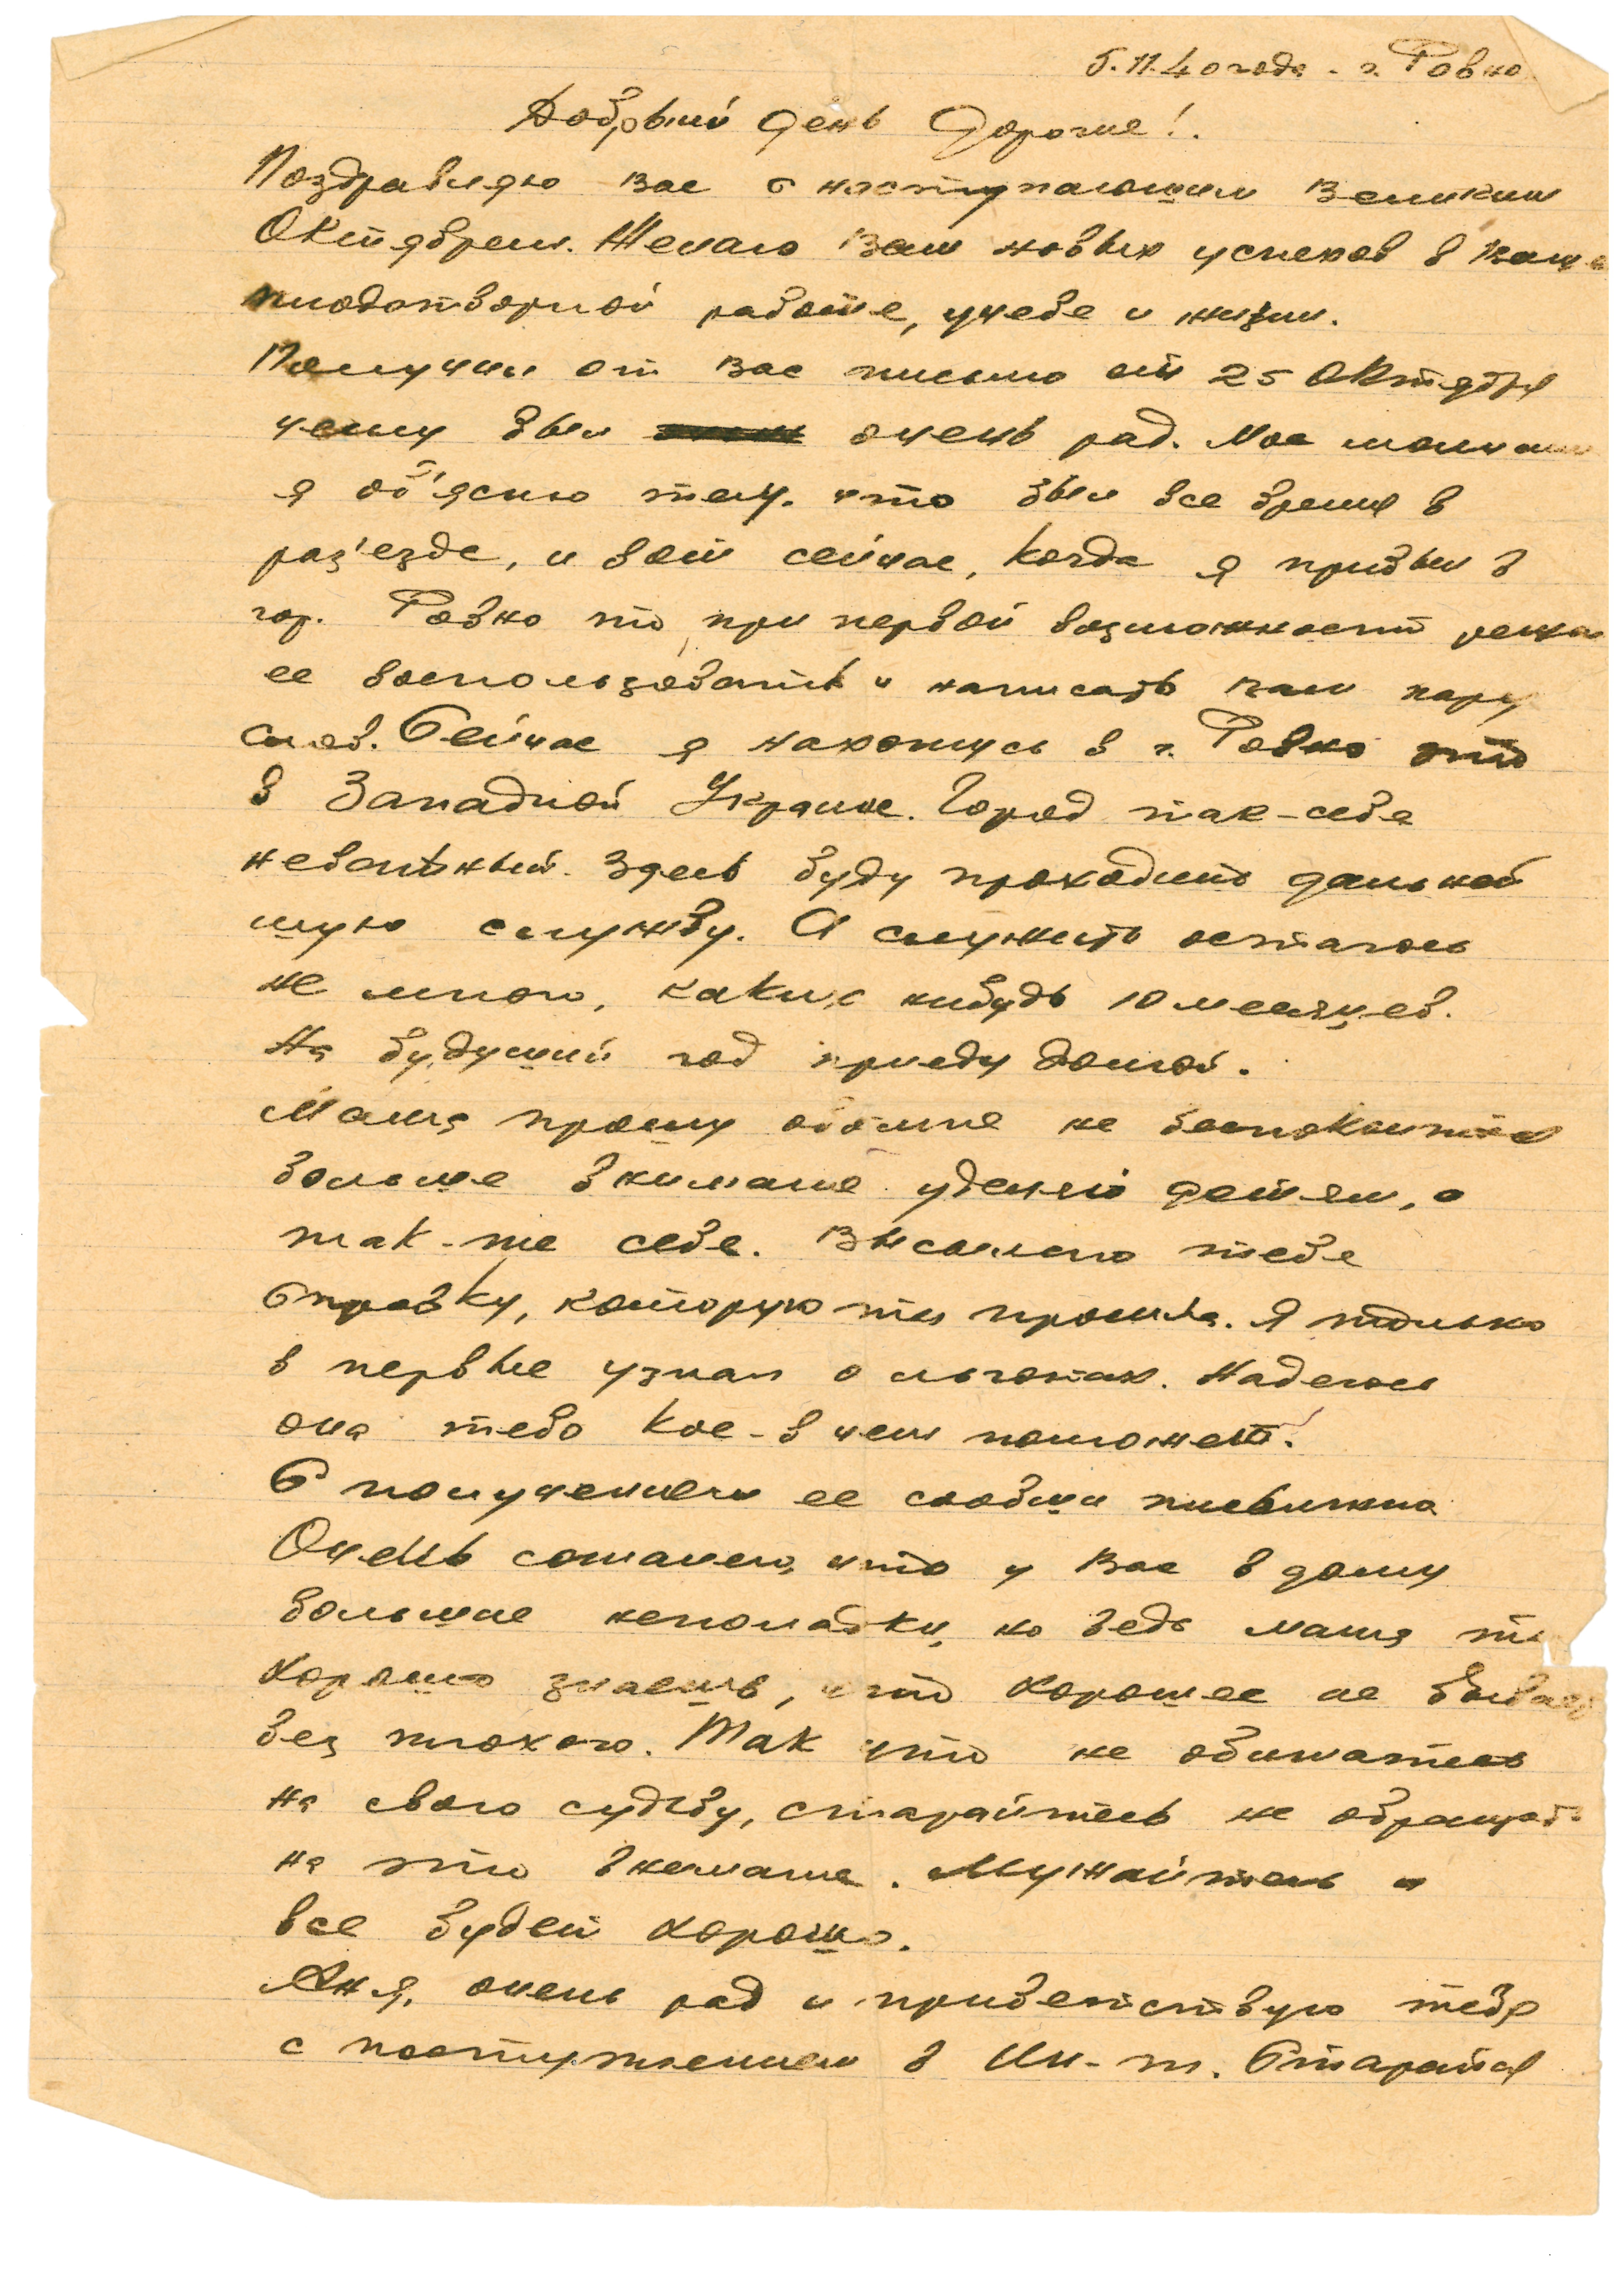 5.11.40 года. г. Ровно.
Добрый день Дорогие!.
Поздравляю Вас с наступающим Великим
Октябрем. Желаю Вам новых успехов в Ваше
плодотворной работе, учебе и жизни.
Получил от Вас письмо от 25 Октября
чему был очень рад. Мое молчани
я об'ясню тем, что был все время в
раз'езде, и вот сейчас, когда я прибыл в
гор. Ровно то при первой возможности решил
ее воспользовать и написать вам пару
слов. Сейчас я нахожусь в г. Ровно это
в Западной Украине. Город так-себе
неважный. Здесь буду проходить дальней
шую службу. А служить осталось
не много, каких нибудь 10 месяцев.
На будущий год приеду домой.
Мама прошу обо мне не беспокоится
больше внимание уделяй детям, а
так-же себе. Высылаю тебе
Справку, которую ты просила. Я только
в первые узнал о льготах. Надеюсь
она тебе кое-в чем поможет.
С получением ее сообщи письменно
Очень сожалею, что у Вас в дому
большие неполадки, но ведь мама ты
хорошо знаешь, что хорошее не бывает
без плохого. Так что не обижайтесь
на свою судьбу, старайтесь не обращать
на это внимание. Мужайтесь и
все будет хорошо.
Аня, очень рад и приветствую тебя
с поступлением в Ин-т. Старайся